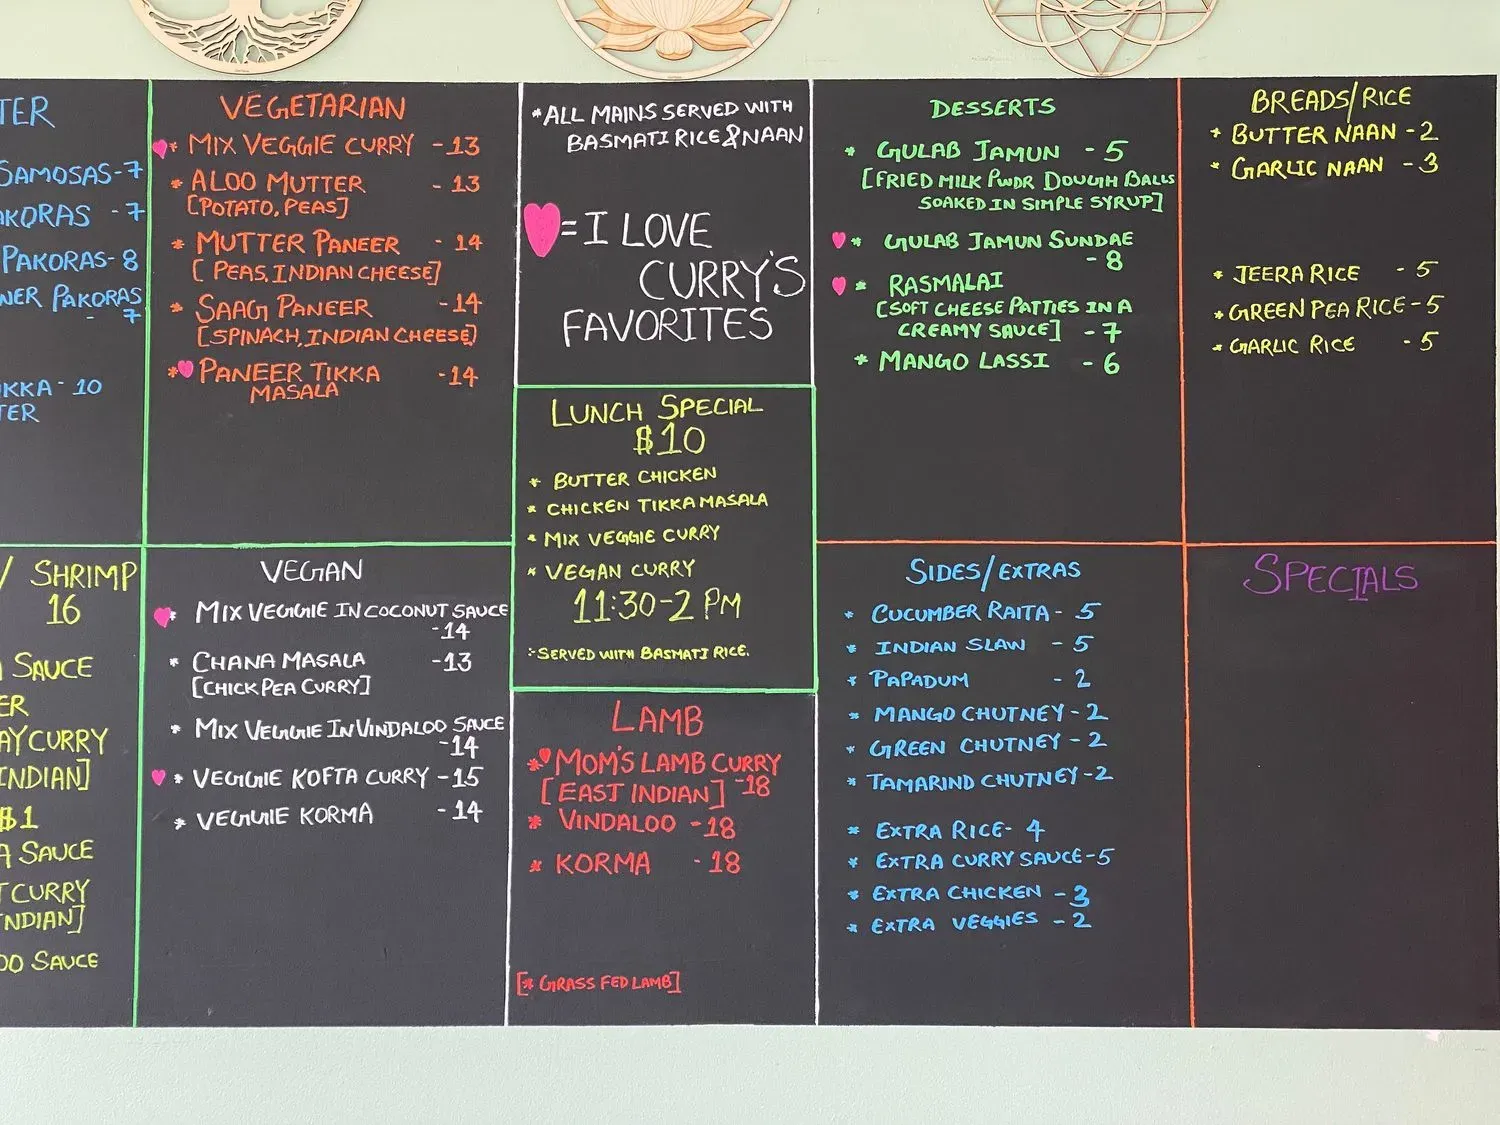 TER
SAMOSAS-7
AKORAS -7
PAKORAS-8
NER PAKORAS
- 7
IKKA- 10
TER
VEGETARIAN
* MIX VEGGIE CURRY -13
* ALOO MUTTER - 13
[POTATO, PEAS]
* MUTTER PANEER - 14
[PEAS, INDIAN CHEESE]
* SAAG PANEER -14
[SPINACH, INDIAN CHEESE]
* PANEER TIKKA -14
MASALA
*ALL MAINS SERVED WITH
BASMATI RICE & NAAN
= I LOVE
CURRY'S
FAVORITES
LUNCH SPECIAL
$10
* BUTTER CHICKEN
* CHICKEN TIKKA MASALA
* MIX VEGGIE CURRY
* VEGAN CURRY
11:30-2 PM
*SERVED WITH BASMATI RICE.
DESSERTS
* GULAB JAMUN - 5
[FRIED MILK PWDR DOUGH BALLS
SOAKED IN SIMPLE SYRUP]
* GULAB JAMUN SUNDAE
- 8
* RASMALAI
[SOFT CHEESE PATTIES IN A
CREAMY SAUCE] - 7
* MANGO LASSI - 6
BREADS/RICE
* BUTTER NAAN - 2
* GARLIC NAAN - 3
* JEERA RICE - 5
* GREEN PEA RICE-5
* GARLIC RICE - 5
/ SHRIMP
16
A SAUCE
ER
AY CURRY
INDIAN]
$1
A SAUCE
T CURRY
INDIAN]
OO SAUCE
VEGAN
* MIX VEGGIE IN COCONUT SAUCE
-14
* CHANA MASALA -13
[CHICKPEA CURRY]
* MIX VEGGIE IN VINDALOO SAUCE
-14
* VEGGIE KOFTA CURRY -15
* VEGGIE KORMA -14
LAMB
* MOM'S LAMB CURRY
[EAST INDIAN] -18
* VINDALOO -18
* KORMA - 18
[* GRASS FED LAMB]
SIDES/EXTRAS
* CUCUMBER RAITA - 5
* INDIAN SLAW - 5
* PAPADUM - 2
* MANGO CHUTNEY - 2
* GREEN CHUTNEY - 2
* TAMARIND CHUTNEY -2
* EXTRA RICE- 4
* EXTRA CURRY SAUCE-5
* EXTRA CHICKEN - 3
* EXTRA VEGGIES - 2
SPECIALS